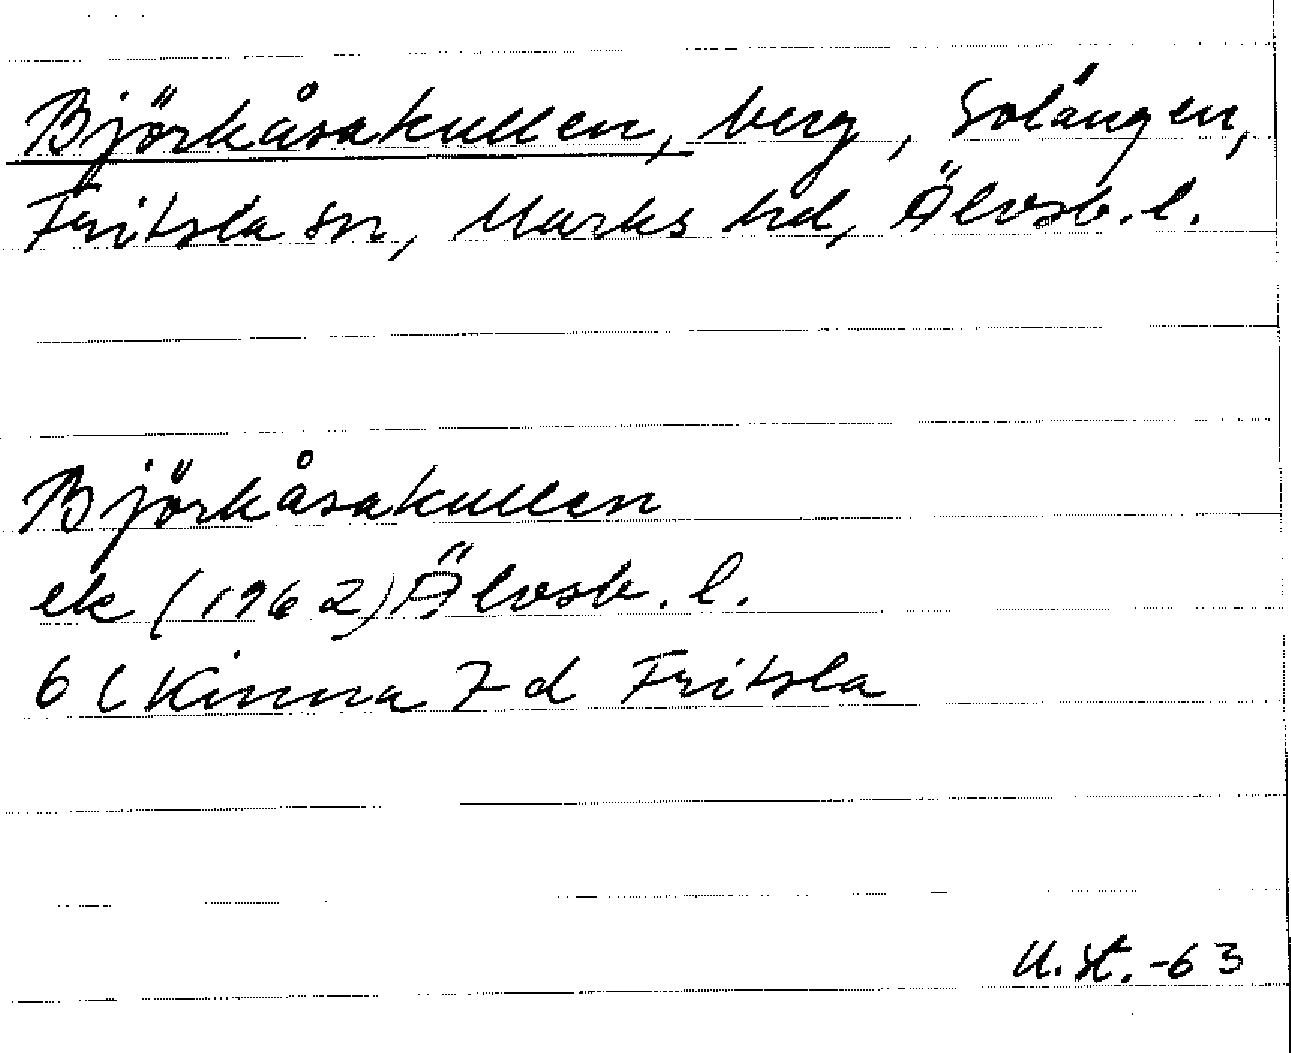 Björkåsakullen, berg, Solängen,
Fritsla sn, Marks hd, Älvsb. l.
Björkåsakullen
ek (1962) Älvsb. l.
6 C Kinna 7 d Fritsla
U. St. -63